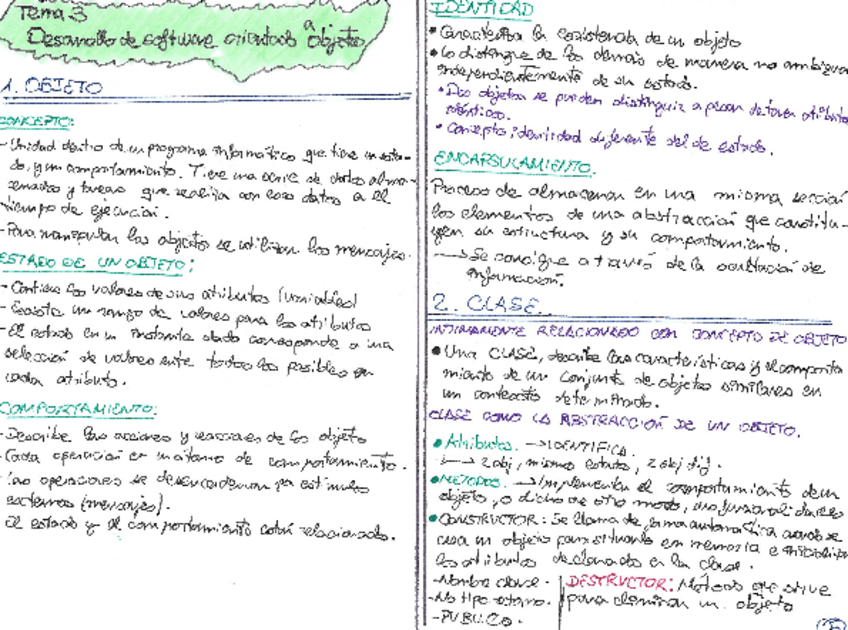 Tema 3
Desarrollo de software orientado a objetos
1. OBJETO
CONCEPTO:
- Unidad dentro de un programa informático que tiene un esta-
do, y un comportamiento. Tiene una serie de datos alma-
cenados y tareas que realiza con esos datos a el
tiempo de ejecución.
- Para manipular los objetos se utilizan los mensajes.
ESTADO DE UN OBJETO:
- Contiene los valores de sus atributos (variables)
- Existe un rango de valores para los atributos
- El estado en un instante dado corresponde a una
selección de valores entre todos los posibles en
cada atributo.
COMPORTAMIENTO:
- Describe las acciones y reacciones de los objeto
- Cada operación es un átomo de comportamiento.
- Las operaciones se desencadenan por estímulos
externos (mensajes).
El estado y el comportamiento están relacionados.
IDENTIDAD
• Caracteriza la existencia de un objeto
• Lo distingue de los demás de manera no ambigua
independientemente de su estado.
• Dos objetos se pueden distinguir a pesar de tener atributos
idénticos.
• Concepto identidad diferente del de estado.
ENCAPSULAMIENTO.
Proceso de almacenar en una misma sección
los elementos de una abstracción que constitu-
yen su estructura y su comportamiento.
→ Se consigue a través de la ocultación de
información.
2. CLASE
INTIMAMENTE RELACIONADO CON CONCEPTO DE OBJETO
• Una CLASE, describe las características y el comporta
miento de un conjunto de objetos similares en
un contexto determinado.
CLASE COMO LA ABSTRACCIÓN DE UN OBJETO.
• Atributos. → IDENTIFICA.
→ 2 obj, mismo estado, 2 obj dif.
• METODOS. → Implementan el comportamiento de un
objeto, o dicho de otro modo,
• CONSTRUCTOR: Se llama de forma automática cuando se
crea un objeto para situarlo en memoria e inicializar
los atributos declarados en la clase.
- Nombre clase.
- No tipo retorno.
- PUBLICO.
DESTRUCTOR: Método que sirve
para eliminar un objeto